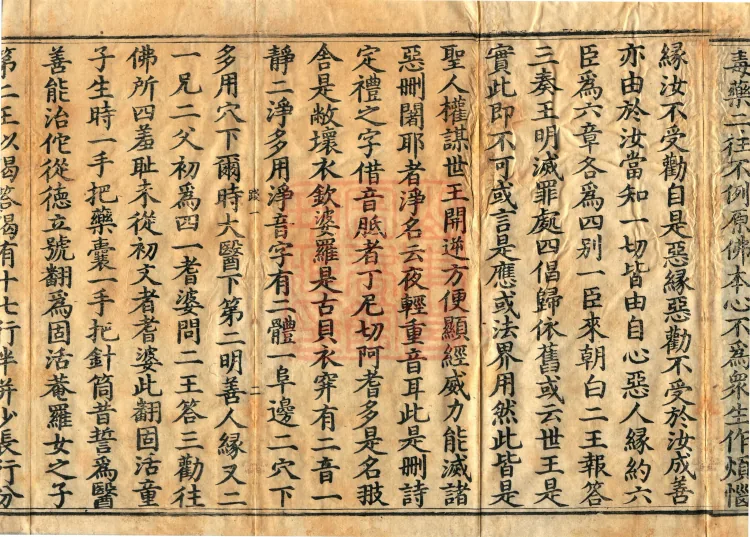 毒藥二往不例原佛本心不爲衆生作煩惱
緣汝不受勸自是惡緣惡勸不受於汝成善
亦由於汝當知一切皆由自心惡人緣約六
臣爲六章各爲四別一臣來朝白二王報答
三奏王明滅罪處四倡歸依舊或云世王是
實此即不可或言是應或法界用然此皆是
聖人權謀世王開逆方便顯經威力能滅諸
惡刪闍耶者淨名云夜輕重音耳此是刪詩
定禮之字借音胝者丁尼切阿耆多是名翅
舎是敝壞衣欽婆羅是古貝衣穽有二音一
靜二淨多用淨音字有二體一阜邊二穴下
多用穴下爾時大醫下第二明善人緣又二
一兄二父初爲四一耆婆問二王答三勸往
佛所四羞耻未從初文者耆婆此翻固活童
子生時一手把藥囊一手把針筒昔誓爲醫
善能治佗從德立號翻爲固活菴羅女之子
第二王以偈答偈有十七行半并少長行分